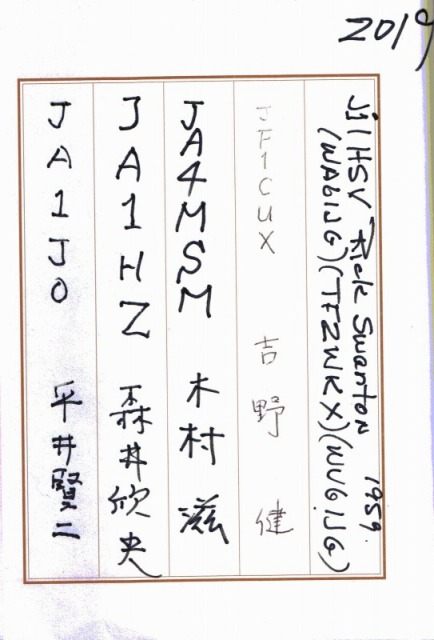 2019
JI1HSV Rick Swanton 1959.
(WA6IJG)(TF2WKX)(WV6IJG)
JF1CUX 吉野 健
JA4MSM 木村 滋
JA1HZ 森井欣夫
JA1JO 平井賢二